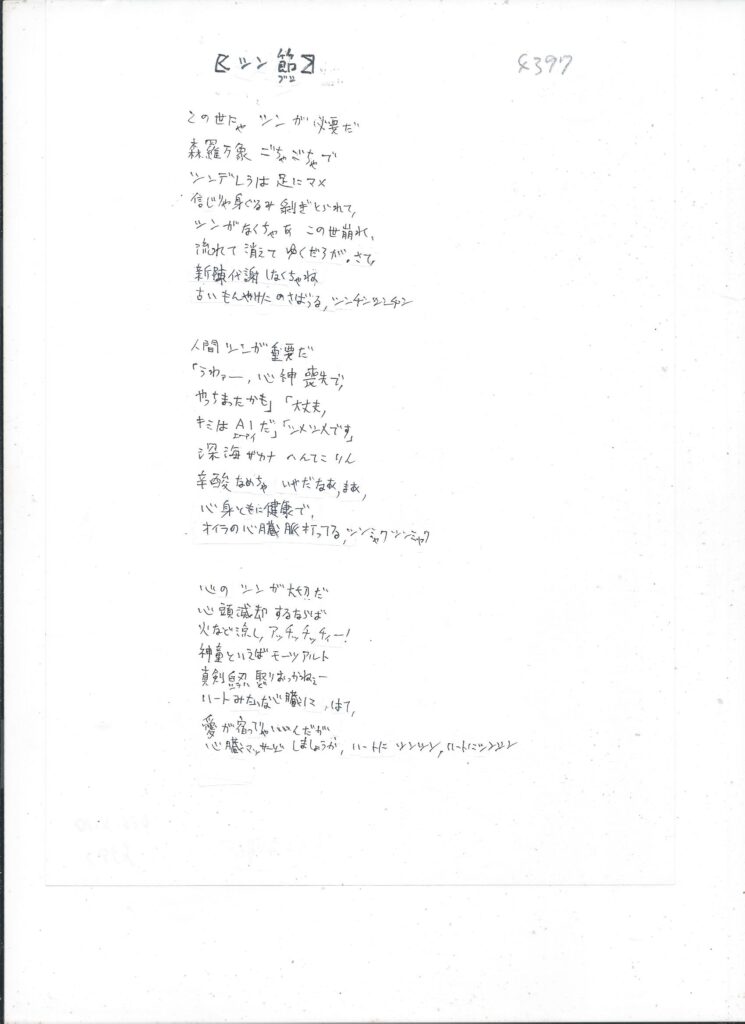 【ツン節】
ブシ
4397
この世にゃ ツンが必要だ
森羅万象 ごちゃごちゃで
ツンデレラは 足にマメ
信じりゃ身ぐるみ剥ぎとられて、
ツンがなくちゃあ この世崩れ、
流れて 消えて ゆくだろが。さて、
新陳代謝しなくちゃね
古いもんだけに のさばらる、ツンチンツンチン
人間ツンが重要だ
「うわァー、心神喪失で、
やっちまったかも」「大丈夫、
キミはAIだ」「ツメツメです」
エーアイ
深海ザカナ へんてこりん
辛酸なめちゃ いやだなあ、まあ、
心身ともに健康で、
オイラの心臓 脈打ってる、ツンシャクツンシャク
心の ツンが大切だ
心頭滅却するならば
火など涼し、アッチッチッチィー!
神童といえばモーツアルト
真剣 おっかねェー
ハートみたいな心臓に、はて、
愛が宿ってりゃいいんだが
心臓マッサージ しましょうか、ハートに ツンツン、ハートにツンツン